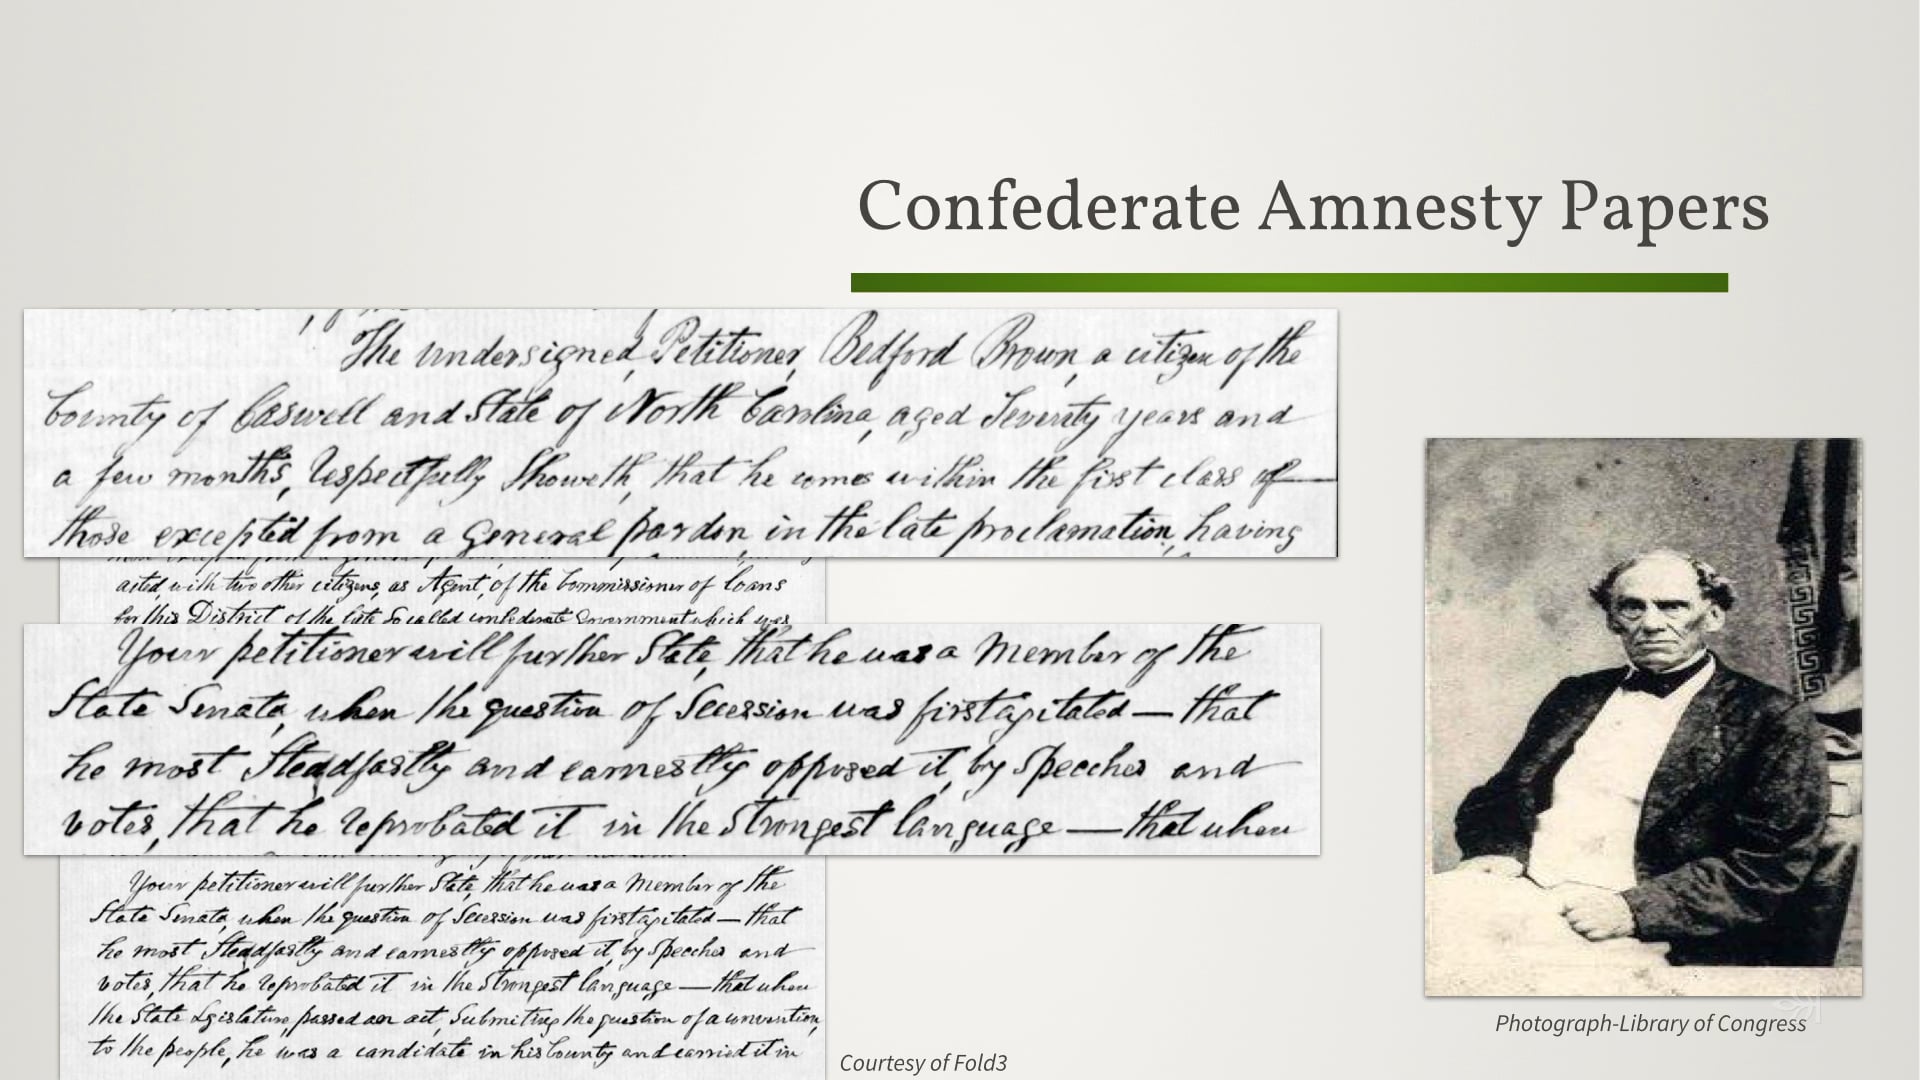 Confederate Amnesty Papers
The undersigned, Petitioner, Bedford Brown, a citizen of the
County of Caswell and State of North Carolina, aged Seventy years and
a few months, respectfully Showeth, that he comes within the first class of
those excepted from a General pardon in the late proclamation, having
acted, with two other citizens, as Agent, of the Commissioner of loans
for this District of the late So called confederate Government which was
Your petitioner will further State, that he was a Member of the
State Senate, when the question of Secession was first agitated — that
he most Steadfastly and earnestly opposed it, by Speeches and
votes, that he reprobated it in the Strongest language — that when
Your petitioner will further State, that he was a Member of the
State Senate, when the question of Secession was first agitated — that
he most Steadfastly and earnestly opposed it, by Speeches and
votes, that he reprobated it in the Strongest language — that when
the State Legislature, passed an act, Submiting the question of a convention,
to the people, he was a candidate in his County and carried it in
Photograph-Library of Congress
Courtesy of Fold3